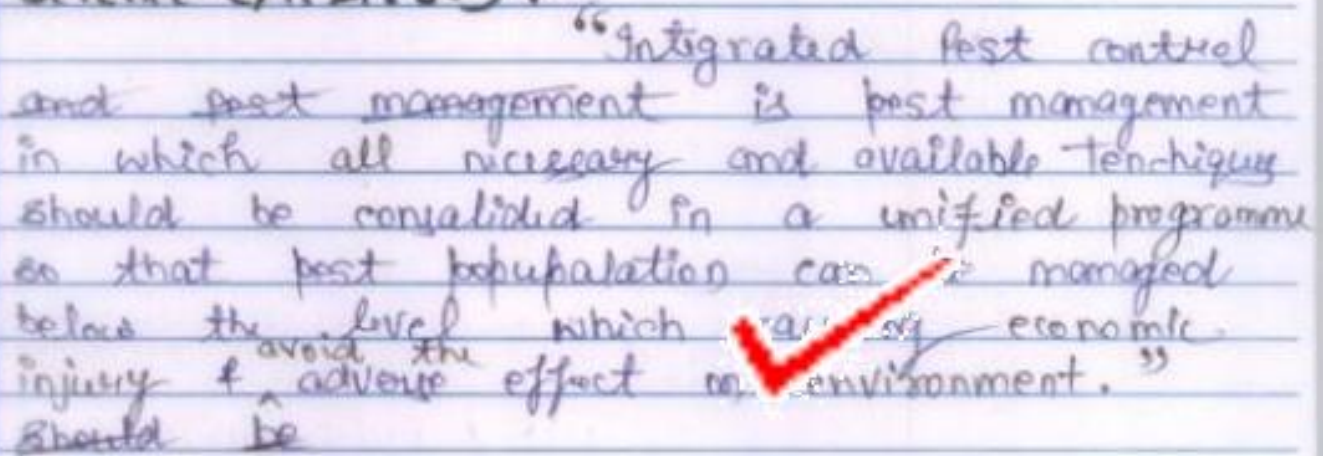 “Integrated Pest control
and pest management is pest management
in which all necessary and available tenchiques
should be consalidid in a unified programme
so that pest popupalation can be managed
below the level which causing economic
injury & avoid the adverse effect on environment.”
should be